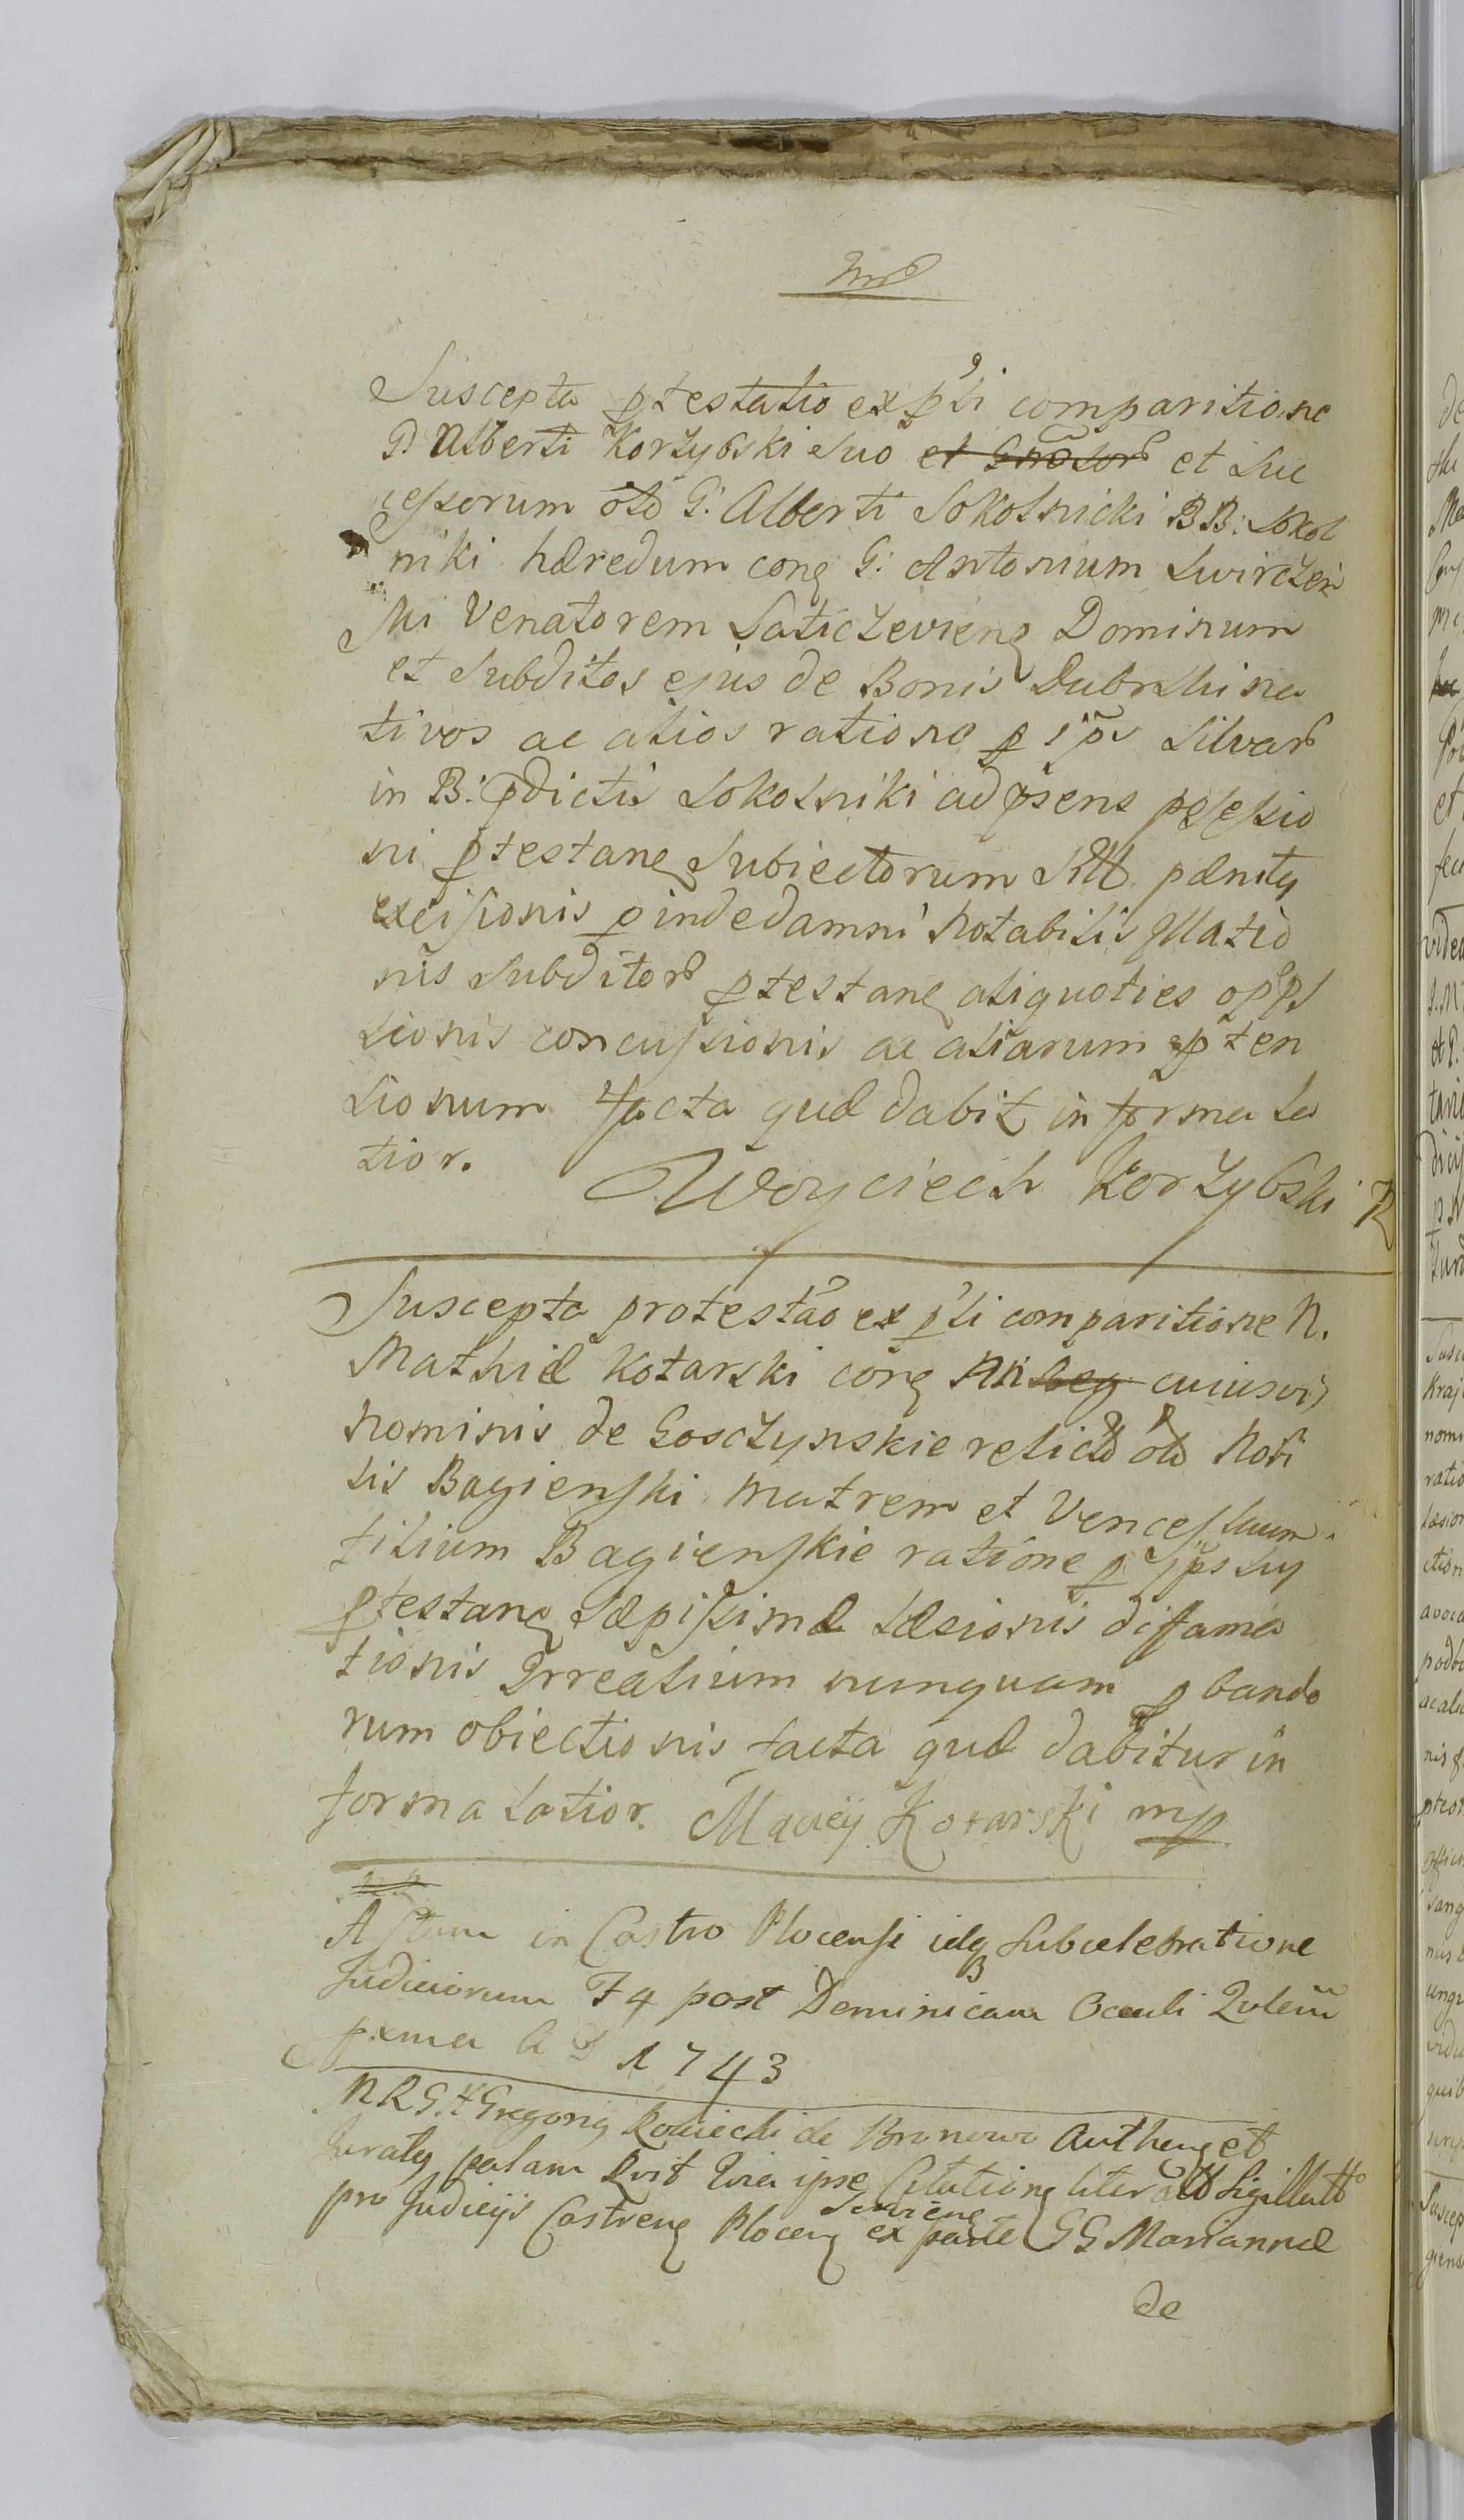 Suscepta ptestatio ex psti comparitione
G. Alberti Korzybski suo et Gnoсor et Suc
cessorum olo G: Alberti Sokolnicki BB: Sokol
niki hæredum conq G: Antonium Swirczew
ski Venatorem Laticzevienq Dominum
et Subditos ejus de Bonis Dubrskina
tivos ac alios ratione p ips Silvar
in B: pdictis Sokolniki ad psens posessio
ni ptestanq Subiectorum pænitq
excisionis pinde damni notabilis Illatio
nis Subditor ptestanq aliquoties opps
sionis concussionis ac aliarum pten
sionum facta quæ dabit in forma la
tior. Woyciech Korzybski
Suscepta protestao ex psti comparitione N.
Mathiæ Kotarski conq NN cuiusvis
nominis de Gosczynskie relictã olo Nobi
lis Bagienski matrem et Venceslaum
filium Bagienskie ratione p ipsus
ptestanq Sæpissimæ Læsionis difama
tionis Irrealium nunquam pbando
rum obiectionis facta quæ dabitur in
forma latior. Maciey Kotarski mp
Actum in Castro Plocensi idq sub celebratione
Judiciorum F 4 post Dominicam Oculi Qulem
pxma A D 1743
Gregorig de Bronowo Autheng et
Juratq palam Qvit Qvia ipse Citationq literall Sigillatt
Servienq
pro Judicijs Castrenq Plocenq ex parte GG Mariannæ
de